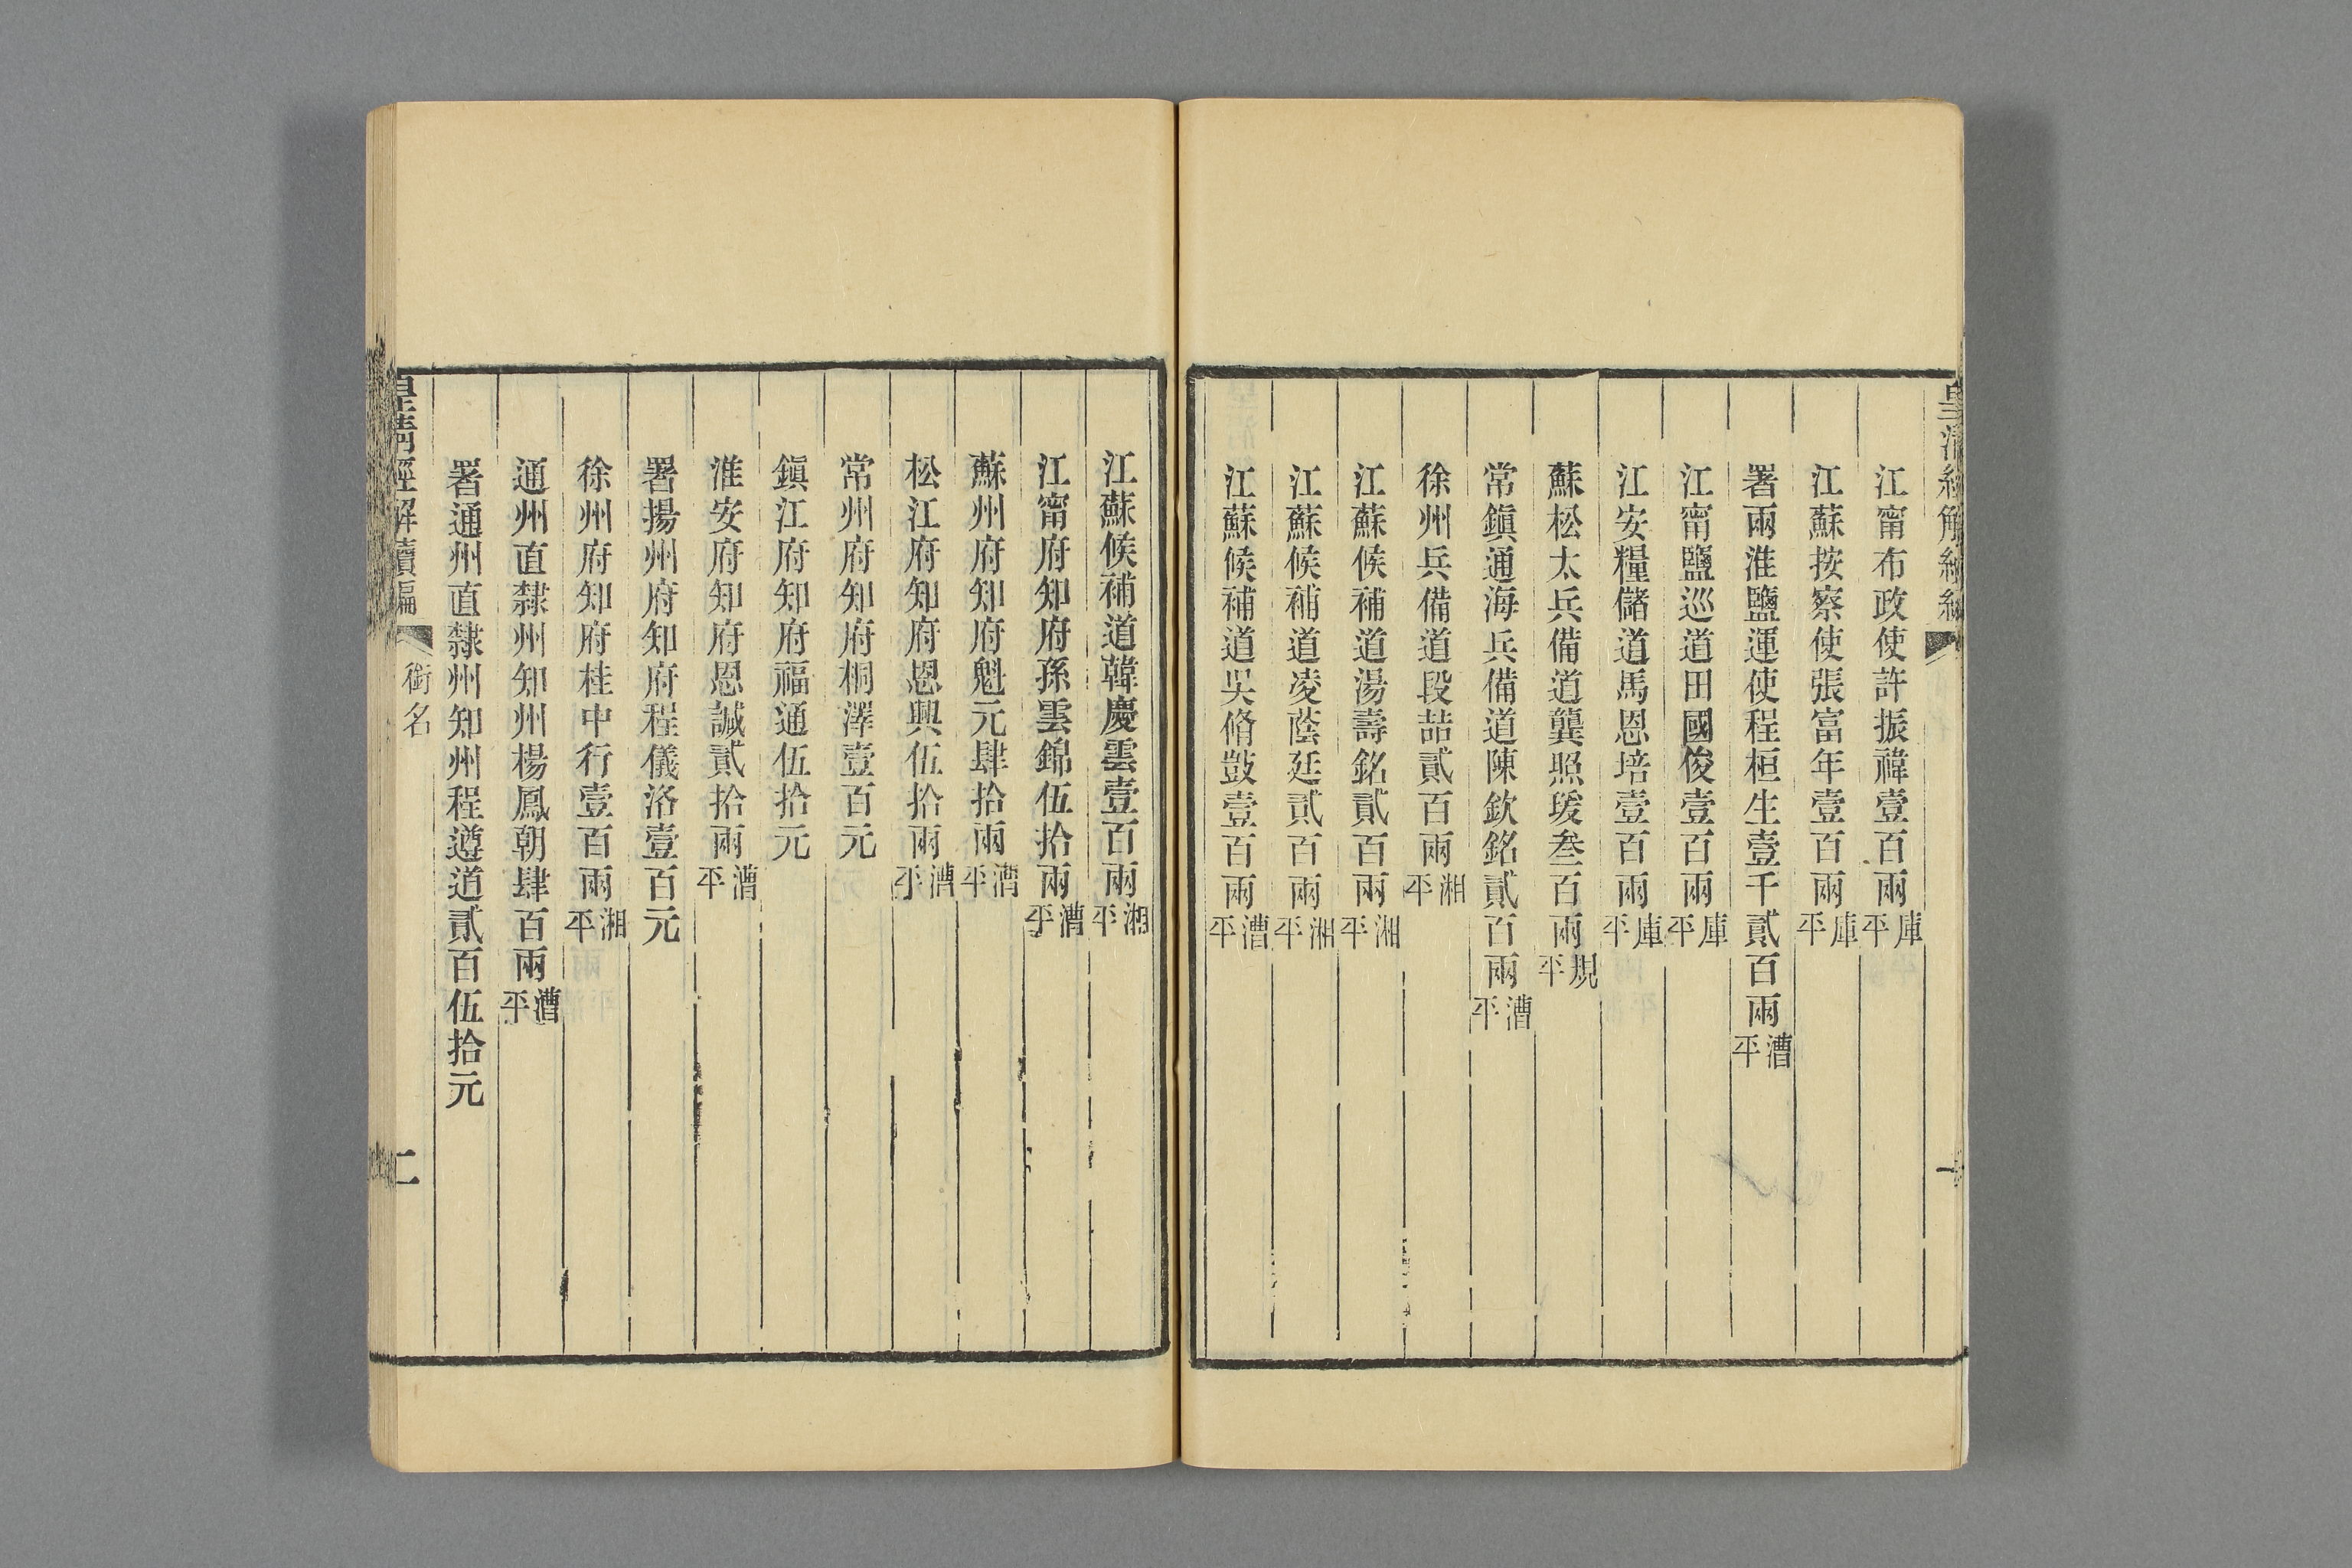 江甯布政使許振禕壹百兩庫平
江蘇按察使張富年壹百兩庫平
署兩淮鹽運使程桓生壹千貳百兩漕平
江甯鹽巡道田國俊壹百兩庫平
江安糧儲道馬恩培壹百兩庫平
蘇松太兵備道龔照瑗叁百兩規平
常鎭通海兵備道陳欽銘貳百兩漕平
徐州兵備道段喆貳百兩湘平
江蘇候補道湯壽銘貳百兩湘平
江蘇候補道凌蔭廷貳百兩湘平
江蘇候補道吳脩敳壹百兩漕平
江蘇候補道韓慶雲壹百兩湘平
江甯府知府孫雲錦伍拾兩漕平
蘇州府知府魁元肆拾兩漕平
松江府知府恩興伍拾兩漕平
常州府知府桐澤壹百元
鎭江府知府福通伍拾元
淮安府知府恩諴貳拾兩漕平
署揚州府知府程儀洛壹百元
徐州府知府桂中行壹百兩湘平
通州直隸州知州楊鳳朝肆百兩漕平
署通州直隸州知州程遵道貳百伍拾元
皇淸經解續編 銜名 二